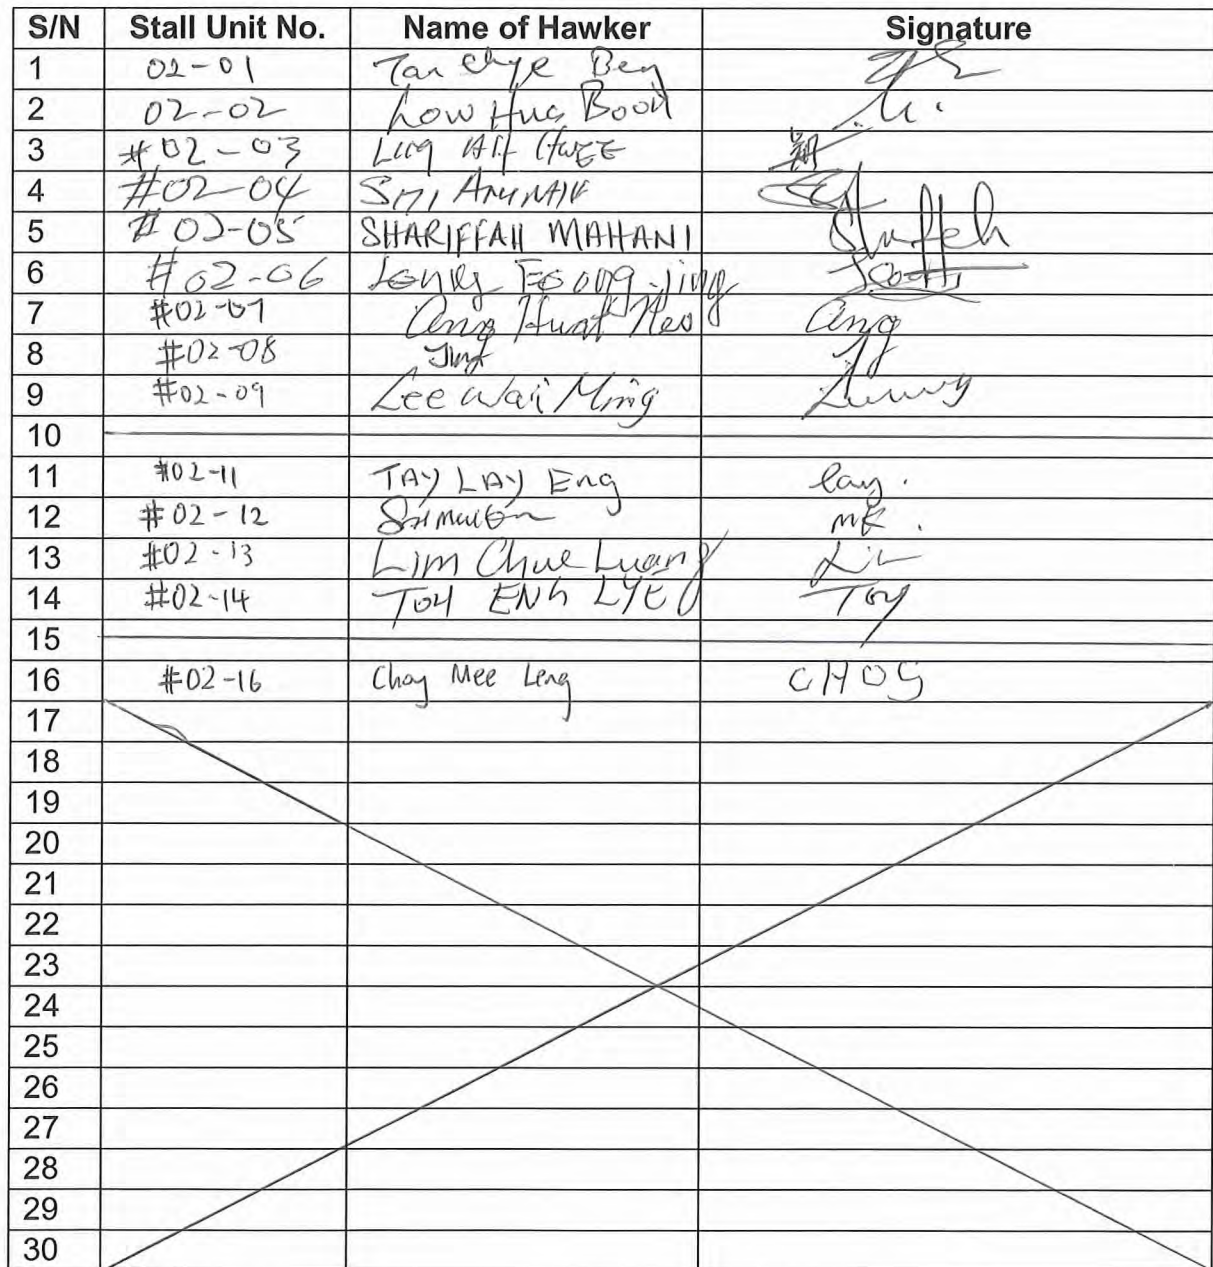 S/N Stall Unit No. Name of Hawker Signature
1 02-01 Tan Chye Beng
2 02-02 Low Hua Boon
3 #02-03 Ling AH HWEE
4 #02-04
5 #02-05 SHARIFFAH MAHANI
6 #02-06 Foong Jing
7 #02-07 Ang Huat Neo Ang
8 #02-08
9 #02-09 Lee Wai Ming
10
11 #02-11 TAY LAY Eng Lay.
12 #02-12 MK.
13 #02-13 Lim Chue Luang
14 #02-14 TOY ENG LYE Toy
15
16 #02-16 Choy Mee Leng CHOY
17
18
19
20
21
22
23
24
25
26
27
28
29
30